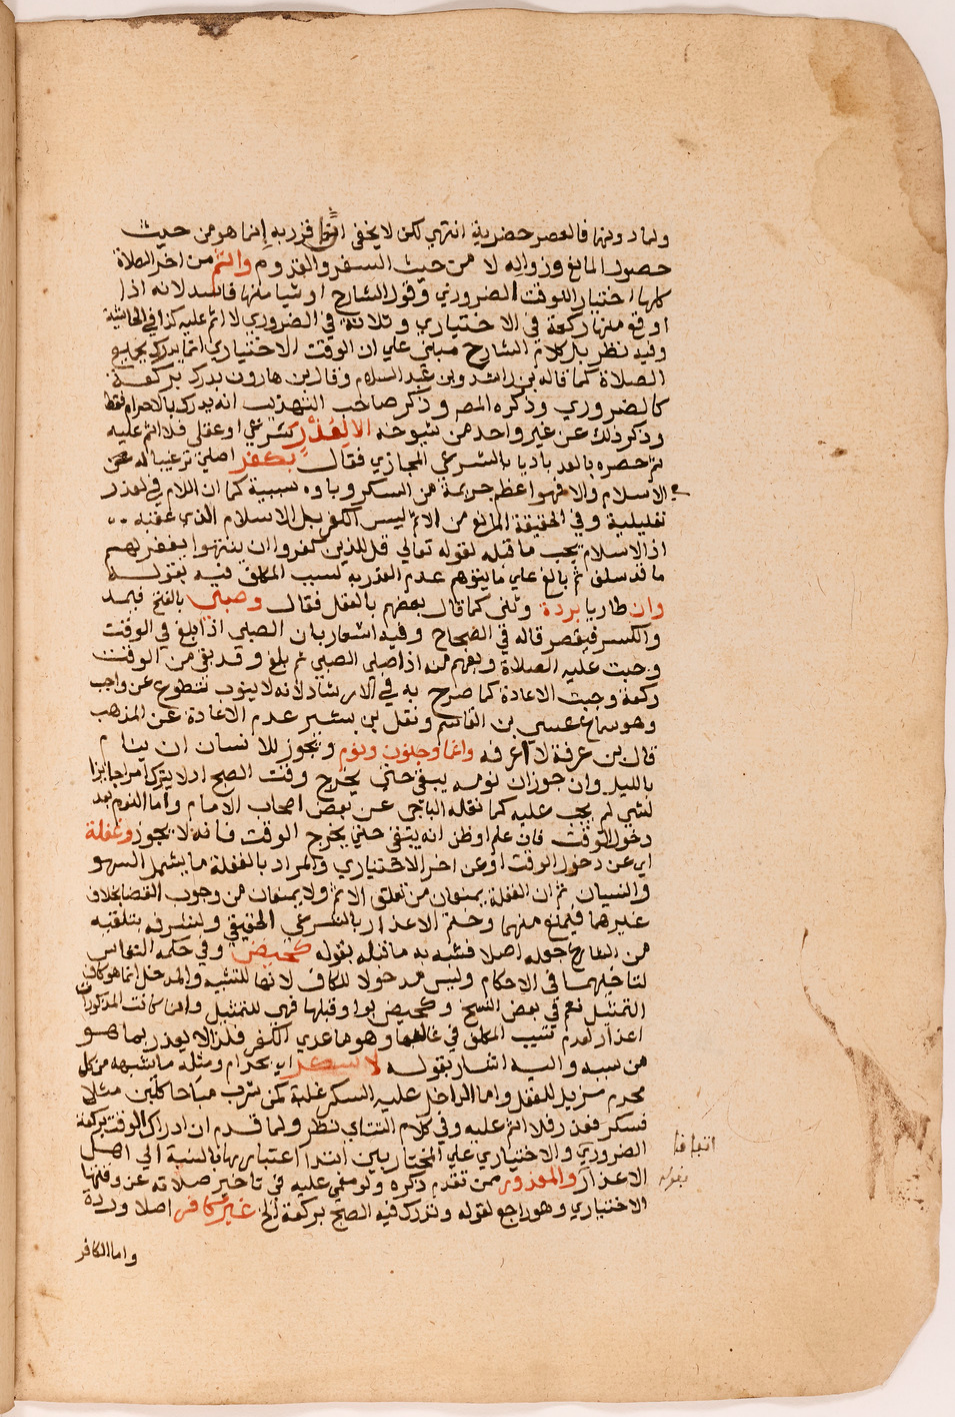 ولما دونها فالعصر حضرية انتهي لكن لا يخفى انما قرر به إنما هو من حيث
حصول المانع وزواله لا من حيث السفر والقدوم واثم من اخر الصلاة
كلها اختيار للوقت الضروري وقول الشارح او شيا منها فاسد لانه اذا
اوقع منها ركعة في الاختياري وثلاثة في الضروري لا اثم عليه كذا في الحاشية
وفيه نظر بل كلام الشارح مبني علي ان الوقت الاختياري انما يدرك بجميع
الصلاة كما قاله بن راشد وبن عبد السلام وقال بن هارون يدرك بركعة
كالضروري وذكره المصـ وذكر صاحب التهذيب انه يدرك بالاحرام فقط
وذكر ذلك عن غير واحد من شيوخه الا لعذر شرعي او عقلي فلا اثم عليه
ثم حصره بالعد باديا بالشرعي المجازي فقال بكفر اصلي ترغيبا له عن
الاسلام والا فهو اعظم جريمة من السكر وباوه سببية كما ان اللام في لعذر
تعليلية وفي الحقيقة المانع من الاثم ليس الكفر بل الاسلام الذي عقبه
اذ الاسلام يجب ما قبله لقوله تعالي قل للذين كفروا ان ينتهوا يغفر لهم
ما قد سلف ثم بالغ علي ما يتوهم عدم العذر به لسبب المكلف فيه بقوله
وان طاريا بردة وثني كما قال بعضهم بالعقل فقال وصبي بالفتح فيمد
والكسر فيقصر قاله في الصحاح وفيه اشعار بان الصبي اذا بلغ في الوقت
وجبت عليه الصلاة ويفهم من اذا صلي الصبي ثم بلغ وقد بقي من الوقت
ركعة وجبت الاعادة كما صرح به في الارشاد لانه لا ينوب تطوع عن واجب
وهو سماع عيسي بن القاسم ونقل بن بشير عدم الاعادة عن المذهب
قال بن عرفة لا اعرفه واغما وجنون ونوم ويجوز للانسان ان ينام
بالليل وان جوز ان نومه يبقى حتى يخرج وقت الصبح اذ لا يترك امر اجايزا
لشي لم يجب عليه كما نقله الباجي عن بعض اصحاب الامام واما النوم بعد
دخول الوقت فان علم او ظن انه يبقى حتى يخرج الوقت فانه لا يجوز وغفلة
اي عن دخول الوقت او عن اخر الاختياري والمراد بالغفلة ما يشمل السهو
والنسيان ثم ان الغفلة يمنعان من تعلق الاثم ولا يمنعان من وجوب القضا بخلاف
غيرها فيمنع منهما وختم الاعذار بالشرعي الحقيقي ولشرفه بتلقيه
من الشارع جعله اصلا فشبه به ما قبله بقوله كحيض وفي حكمه النفاس
لتداخلهما في الاحكام وليس مدخولا للكاف لانها للتشبيه والمدخل انما هو كاف
التمثيل نعم في بعض النسخ وكحيض بواو قبلها فهي للتمثيل ولما كانت المذكورات
اعذار لعدم تسبب المكلف في غالبها وهو ما عدي الكفر فلذا لا يعذر بما هو
من سببه واليه اشار بقوله لا سكر اي بحرام ومثله ما اشبهه من كل
محرم مزيل للعقل واما الداخل عليه السكر غلبة كمن شرب مباحا كلبن مثلا
فسكر فعذر فلا اثم عليه وفي كلام التتاي نظر ولما قدم ان ادراك الوقت بركعة
الضروري والاختياري علي المختار بين ابتدا اعتبارها بالنسبة الي اهل
الاعذار والمعذور ممن تقدم ذكره ولو مفي عليه في تاخير صلاته عن وقتها
الاختياري وهو راجع لقوله وتدرك فيه الصبح بركعة الخ غير كافر اصلا وردة
واما الكافر
اتفاقا
بقوله